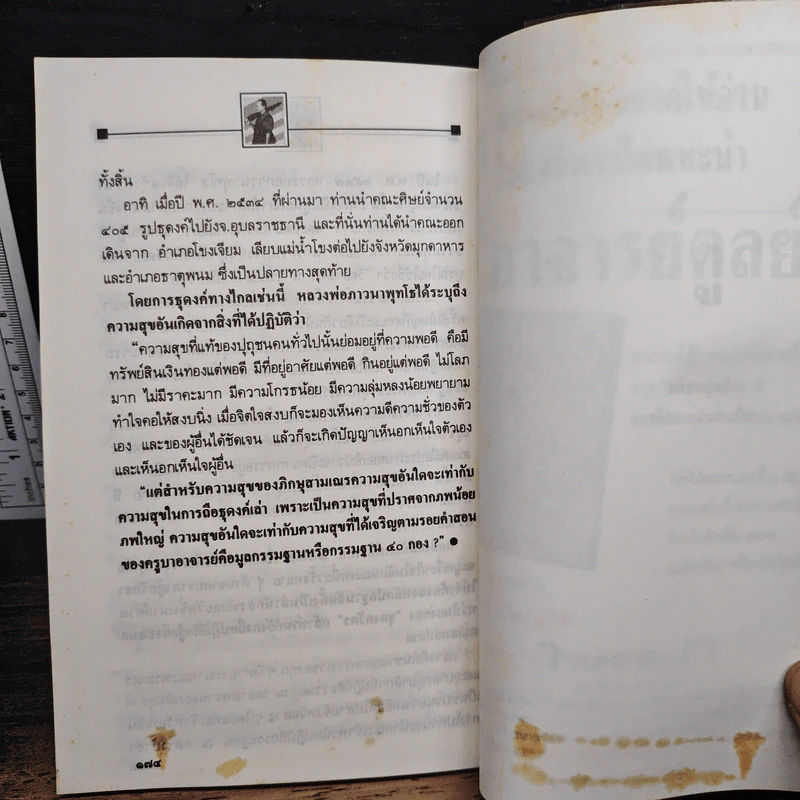 ทั้งสิ้น
อาทิ เมื่อปี พ.ศ. ๒๕๓๔ ที่ผ่านมา ท่านนำคณะศิษย์จำนวน
๔๐๕ รูปธุดงค์ไปยังจ.อุบลราชธานี และที่นั่นท่านได้นำคณะออก
เดินจาก อำเภอโขงเจียม เลียบแม่น้ำโขงต่อไปยังจังหวัดมุกดาหาร
และอำเภอธาตุพนม ซึ่งเป็นปลายทางสุดท้าย
โดยการธุดงค์ทางไกลเช่นนี้ หลวงพ่อภาวนาพุทโธได้ระบุถึง
ความสุขอันเกิดจากสิ่งที่ได้ปฏิบัติว่า
“ความสุขที่แท้ของปุถุชนคนทั่วไปนั้นย่อมอยู่ที่ความพอดี คือมี
ทรัพย์สินเงินทองแต่พอดี มีที่อยู่อาศัยแต่พอดี กินอยู่แต่พอดี ไม่โลภ
มาก ไม่มีราคะมาก มีความโกรธน้อย มีความลุ่มหลงน้อยพยายาม
ทำใจคอให้สงบนิ่ง เมื่อจิตใจสงบก็จะมองเห็นความดีความชั่วของตัว
เอง และของผู้อื่นได้ชัดเจน แล้วก็จะเกิดปัญญาเห็นอกเห็นใจตัวเอง
และเห็นอกเห็นใจผู้อื่น
“แต่สำหรับความสุขของภิกษุสามเณรความสุขอันใดจะเท่ากับ
ความสุขในการถือธุดงค์เล่า เพราะเป็นความสุขที่ปราศจากภพน้อย
ภพใหญ่ ความสุขอันใดจะเท่ากับความสุขที่ได้เจริญตามรอยคำสอน
ของครูบาอาจารย์คือมูลกรรมฐานหรือกรรมฐาน ๔๐ กอง ?” ●
๑๗๔